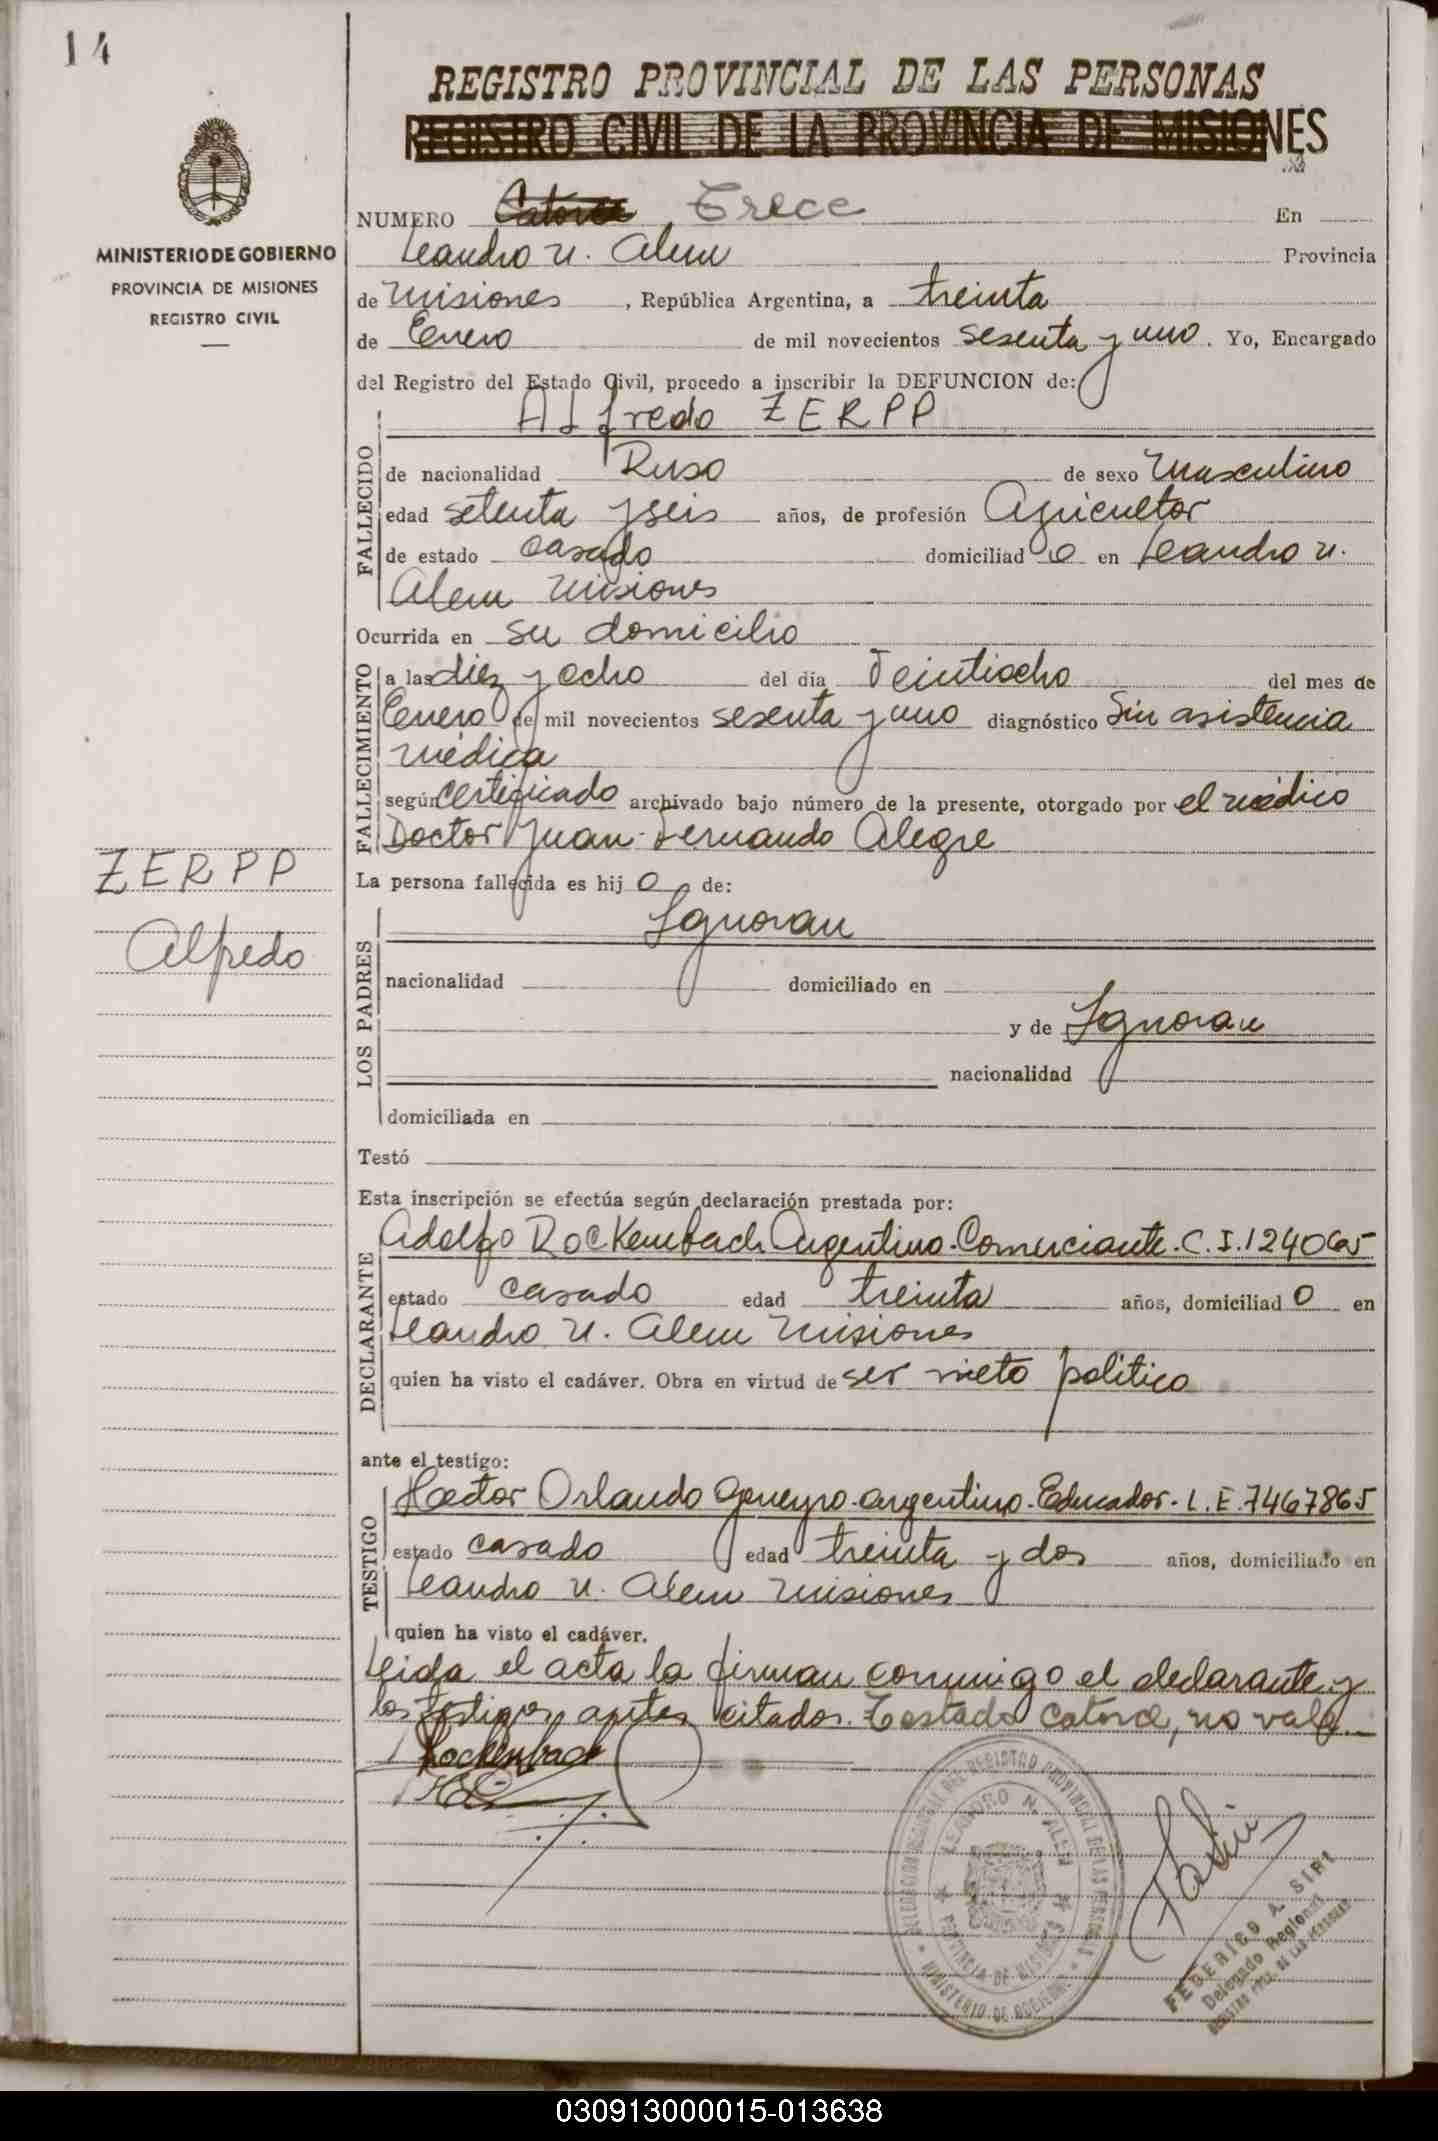 14
REGISTRO PROVINCIAL DE LAS PERSONAS
REGISTRO CIVIL DE LA PROVINCIA DE MISIONES
MINISTERIO DE GOBIERNO
PROVINCIA DE MISIONES
REGISTRO CIVIL
NUMERO Catorce Trece En
Leandro N. Alem Provincia
de Misiones, República Argentina, a treinta
de Enero de mil novecientos sesenta y uno. Yo, Encargado
del Registro del Estado Civil, procedo a inscribir la DEFUNCION de:
Alfredo ZERPP
FALLECIDO
de nacionalidad Ruso de sexo Masculino
edad setenta y seis años, de profesión Agricultor
de estado casado domiciliad o en Leandro N.
Alem Misiones
Ocurrida en su domicilio
FALLECIMIENTO
a las diez y ocho del día Veintiocho del mes de
Enero de mil novecientos sesenta y uno diagnóstico Sin asistencia
médica
según certificado archivado bajo número de la presente, otorgado por el médico
Doctor Juan Fernando Alegre
ZERPP
Alfredo
La persona fallecida es hij o de:
LOS PADRES
Ignoran
nacionalidad domiciliado en
y de Ignoran
nacionalidad
domiciliada en
Testó
Esta inscripción se efectúa según declaración prestada por:
DECLARANTE
Adolfo Rockembach Argentino. Comerciante. C. I. 124065
estado casado edad treinta años, domiciliad o en
Leandro N. Alem Misiones
quien ha visto el cadáver. Obra en virtud de ser nieto politico
ante el testigo:
TESTIGO
Hector Orlando argentino. Educador. L. E. 7467865
estado casado edad treinta y dos años, domiciliado en
Leandro N. Alem Misiones
quien ha visto el cadáver.
Leida el acta la firman conmigo el declarante y
los testigos antes citados. Testado catorce, no vale
Rockenbach
DELEGACION REGIONAL DEL REGISTRO PROVINCIAL DE LAS PERSONAS
LEANDRO N. ALEM
PROVINCIA DE MISIONES
MINISTERIO DE GOBIERNO
FEDERICO A. SIRI
Delegado Regional
REGISTRO PROV. DE LAS PERSONAS
030913000015-013638